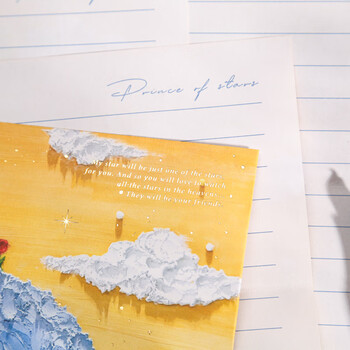 Prince of stars
My star will be just one of the stars
for you. And so you will love to watch
all the stars in the heavens
They will be your friends